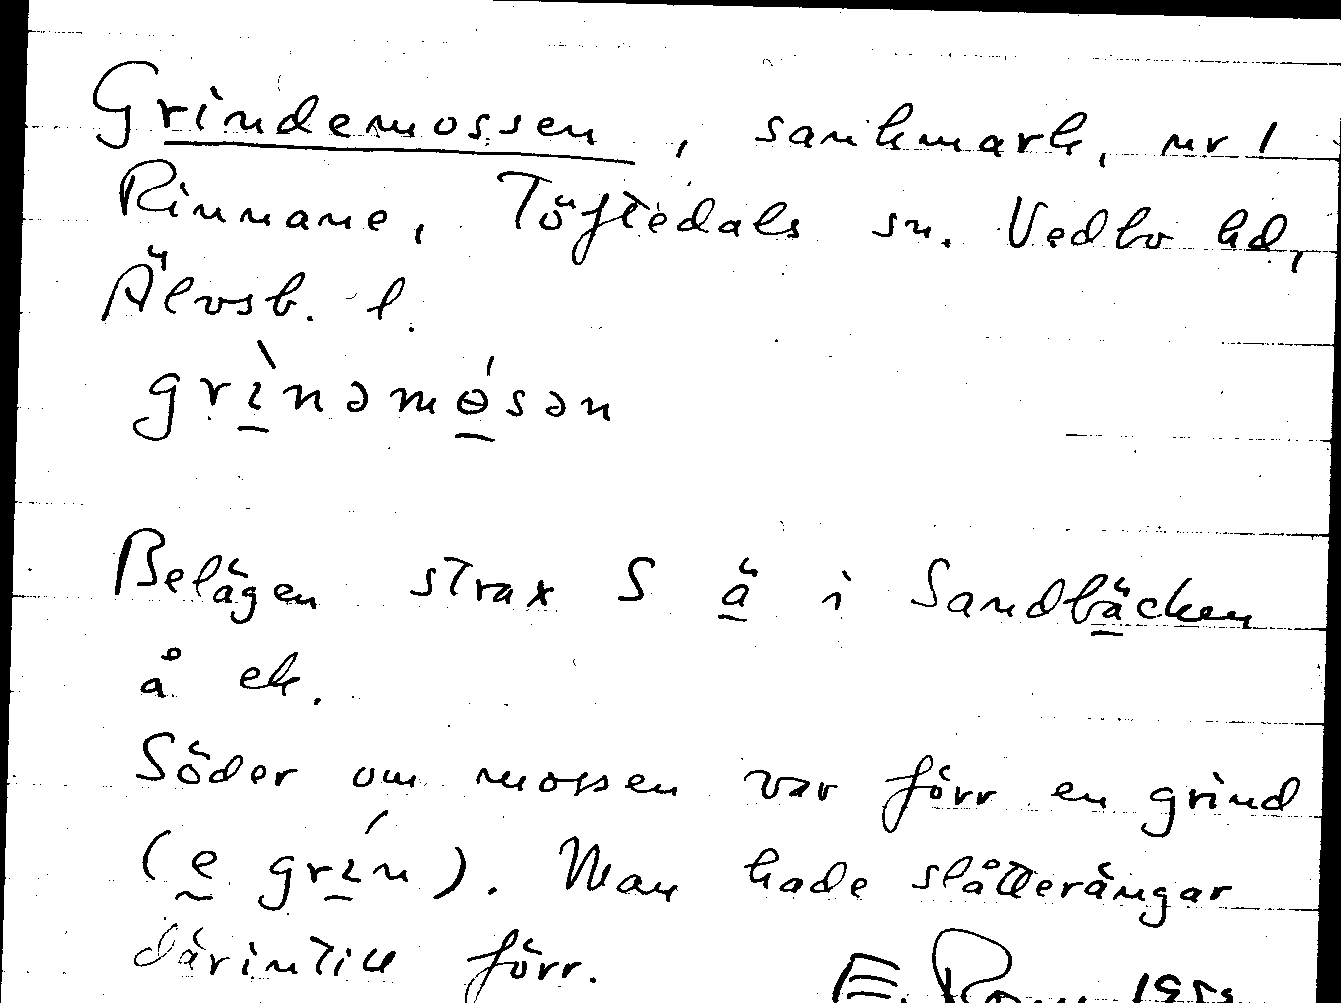 Grindemossen, sankmark, nr 1
Rinnane, Töftedals sn. Vedbo hd,
Älvsb. l.
grìnəmɵ́sən
Belägen strax S ä i Sandbäcken
å ek.
Söder om mossen var förr en grind
(e grín). Man hade slåtterängar
därintill förr.
E.